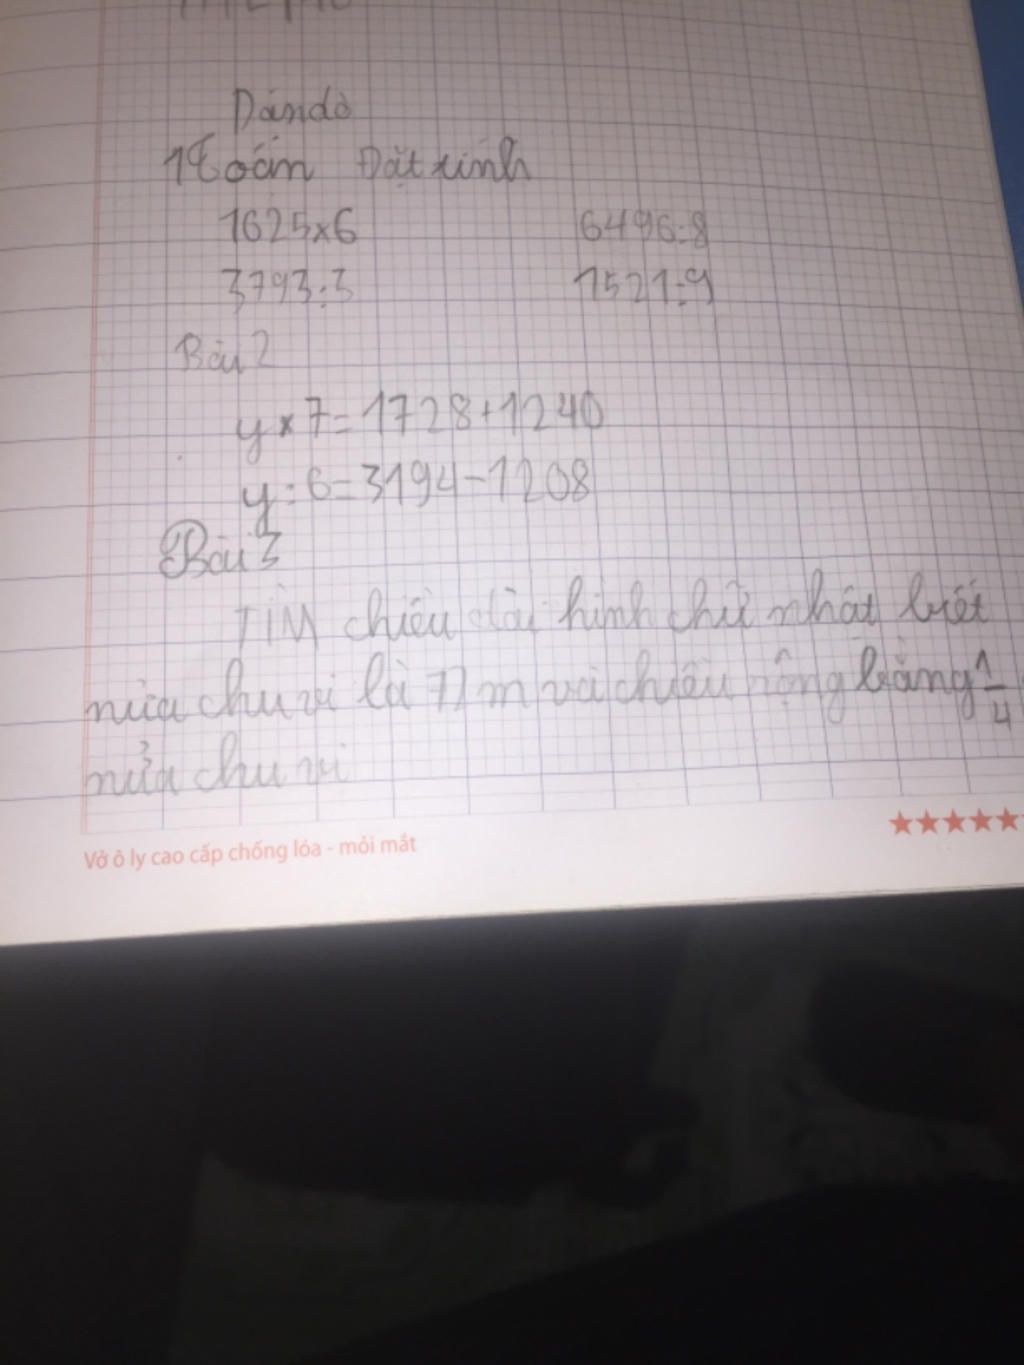 Dặn dò
1 Toán Đặt tính
1625×6 6496:8
3793:3 1521:9
Bài 2
y × 7 = 1728 + 1240
y : 6 = 3194 - 1208
Bài 3
TÌM chiều dài hình chữ nhật biết
nửa chu vi là m và chiều rộng bằng 1/4
nửa chu vi
Vở ô ly cao cấp chống lóa - mỏi mắt